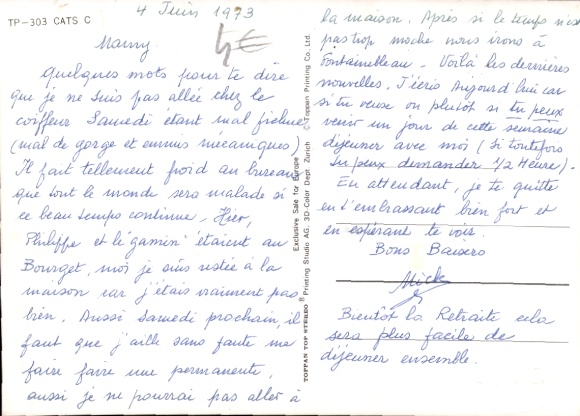 TP-303 CATS C
4 Juin 1973
4€
Mamy.
Quelques mots pour te dire
que je ne suis pas allée chez le
coiffeur Samedi étant mal fichue
(mal de gorge et ennuis mécaniques)
Il fait tellement froid au bureau
que tout le monde sera malade si
ce beau temps continue. Hier,
Philippe et le "gamin" étaient au
Bourget, moi je suis restée à la
maison car j'étais vraiment pas
bien. Aussi Samedi prochain, il
faut que j'aille sans faute me
faire faire une permanente,
aussi je ne pourrai pas aller à
Exclusive Sale for Europe
Printing Studio AG, 3D Color Dept Zürich
TOPPAN TOP STEREO ® © Toppan Printing Co. Ltd.
la maison. Après si le temps n'est
pas trop moche nous irons à
Fontainebleau. Voilà les dernières
nouvelles. J'écris Aujourd'hui car
si tu veux ou plutôt si tu peux
venir un jour de cette semaine
déjeuner avec moi (si toutefois
tu peux demander 1/2 Heure).
En attendant, je te quitte
en t'embrassant bien fort et
en espérant te voir.
Bons Baisers
Mick
Bientôt la Retraite cela
sera plus facile de
déjeuner ensemble.